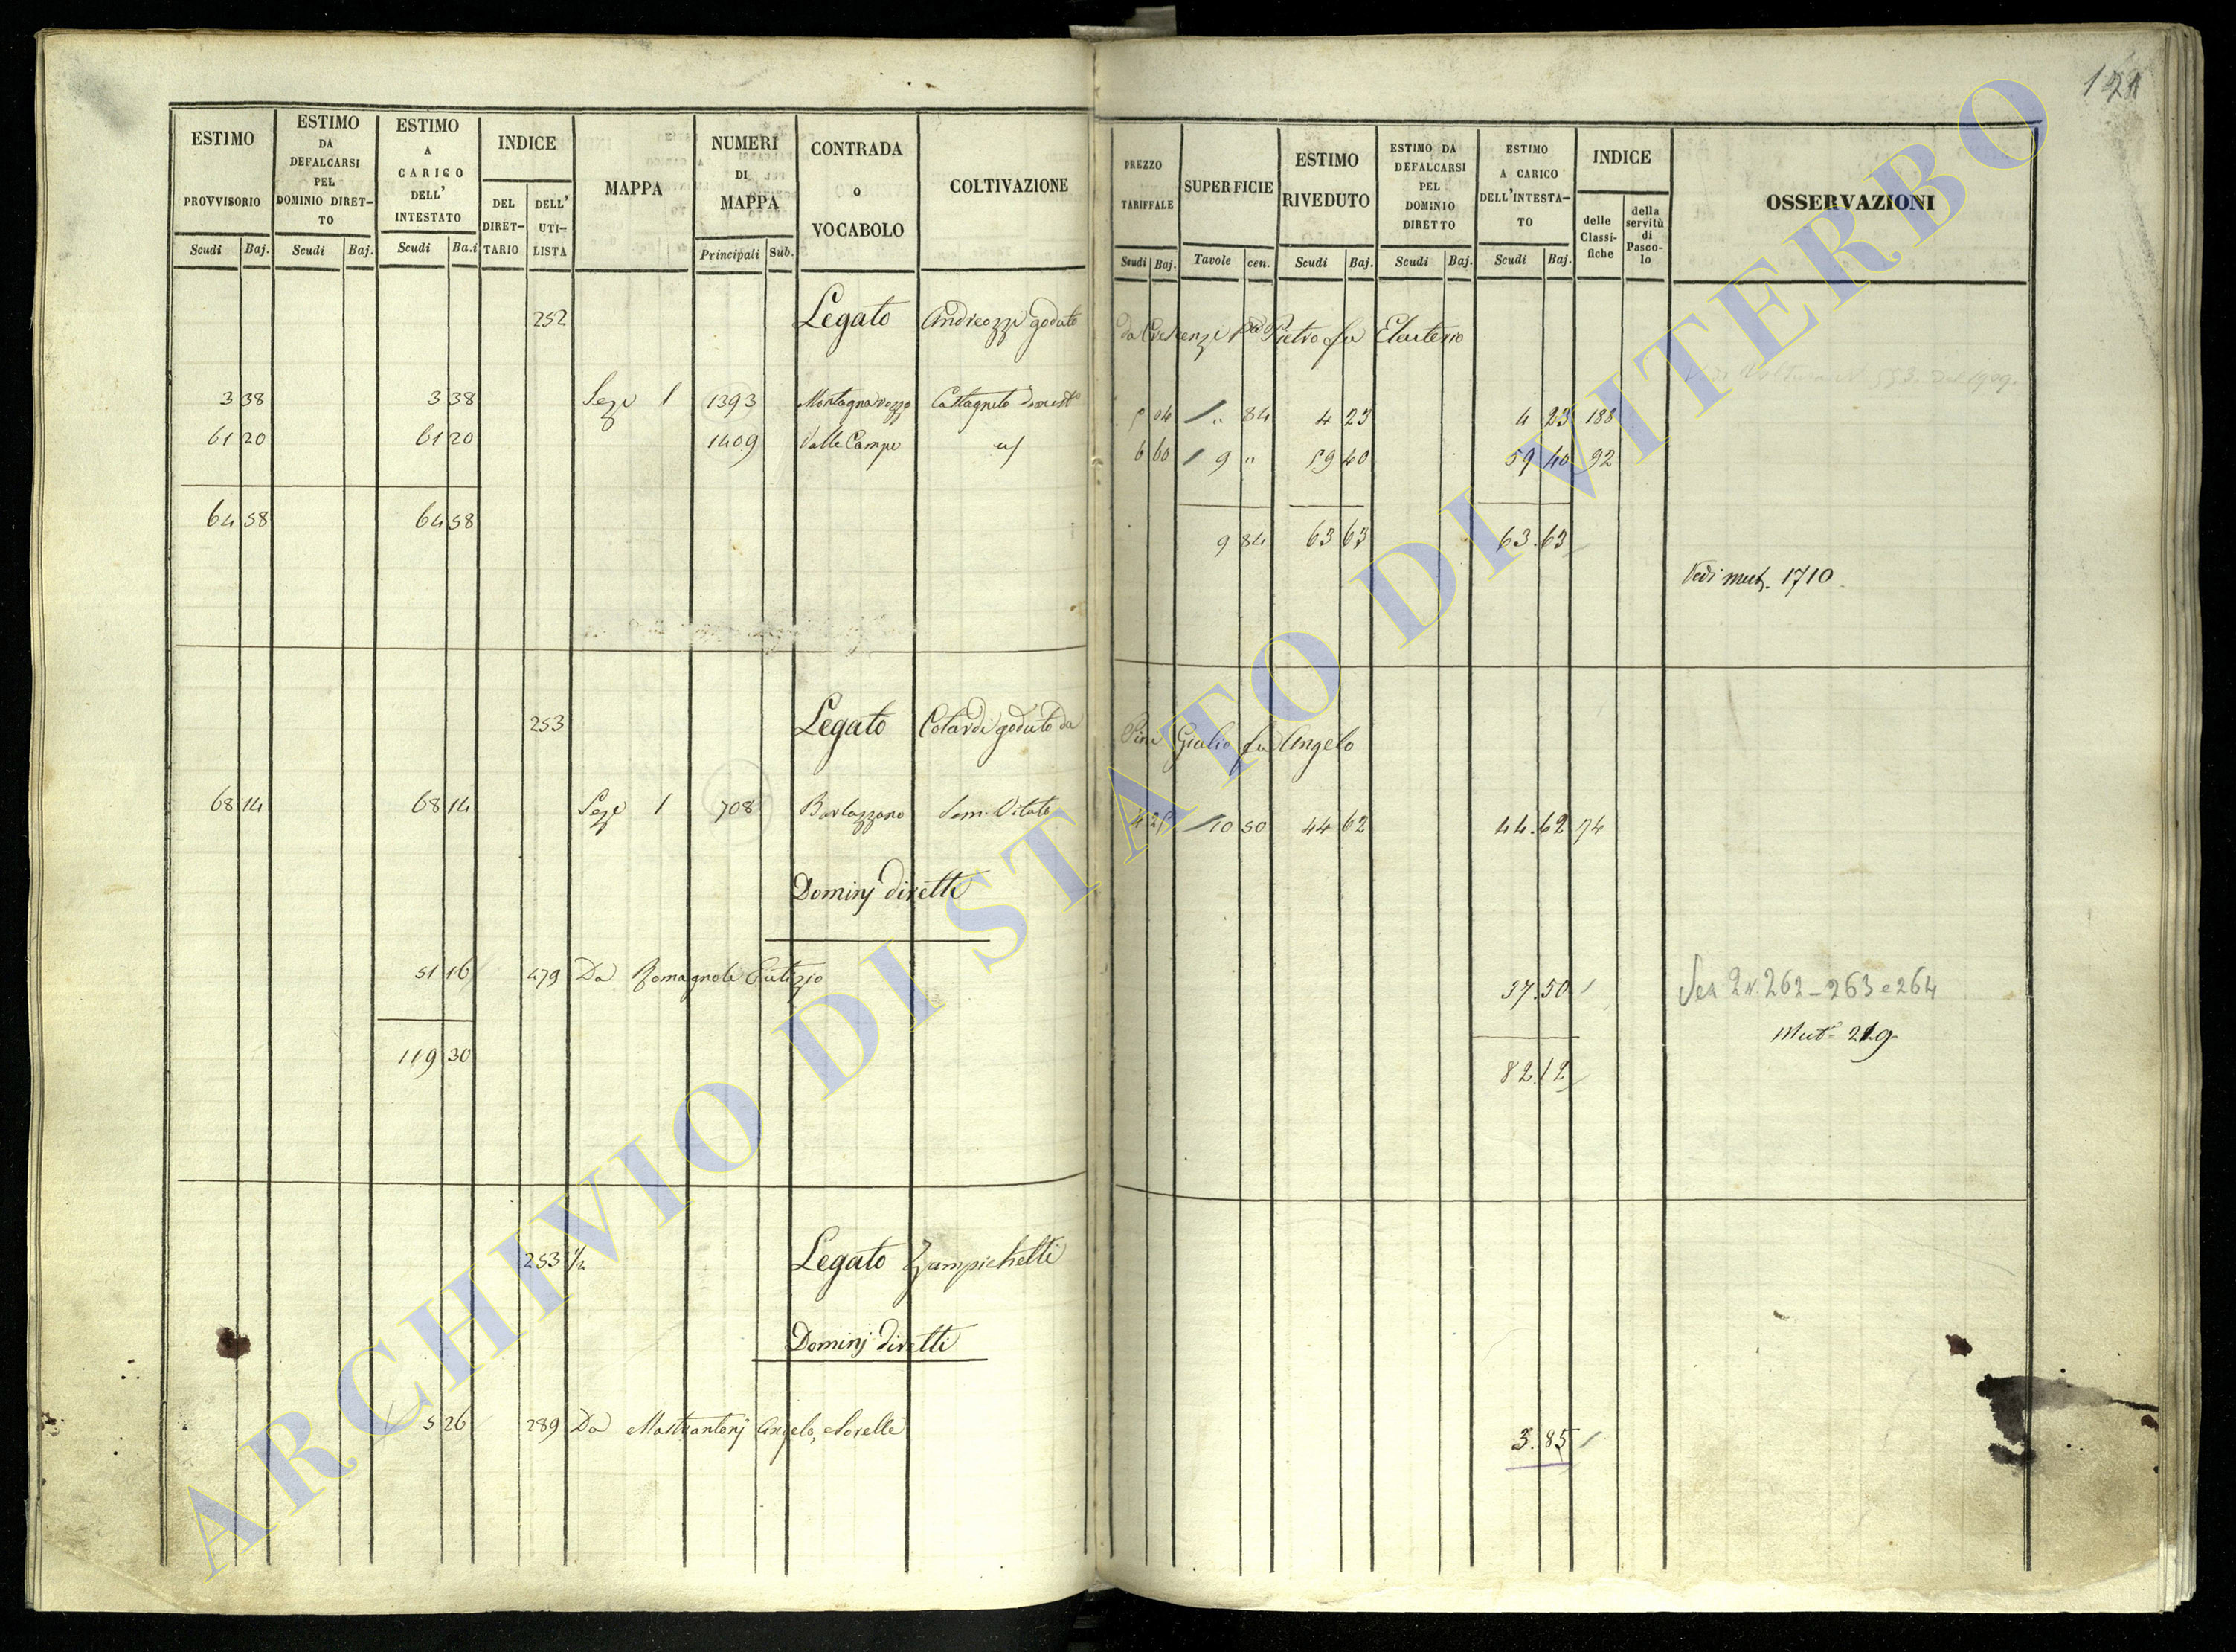 121
ESTIMO PROVVISORIO
ESTIMO DA DEFALCARSI PEL DOMINIO DIRET-TO
ESTIMO A CARICO DELL' INTESTATO
INDICE
DEL DIRET-TARIO
DELL' UTI-LISTA
MAPPA
NUMERI DI MAPPA
CONTRADA o VOCABOLO
COLTIVAZIONE
PREZZO TARIFFALE
SUPERFICIE
ESTIMO RIVEDUTO
ESTIMO DA DEFALCARSI PEL DOMINIO DIRETTO
ESTIMO A CARICO DELL'INTESTA-TO
INDICE
delle Classi-fiche
della servitù di Pasco-lo
OSSERVAZIONI
Scudi Baj. Scudi Baj. Scudi Ba.i Principali Sub. Scudi Baj. Tavole cen. Scudi Baj. Scudi Baj. Scudi Baj.
252 Legato Andreozzi goduto da Crescenzi Pietro fu Eleuterio
3 38 3 38 Sez. 1 1393 Montagna rozzo Castagneto 5 04 " 84 4 23 4 23 188
61 20 61 20 1409 Valle Campo 6 60 9 " 59 40 59 40 92
64 58 64 58 9 84 63 63 63.63
Vedi mut. 1710
253 Legato Colardi goduto da Pini Giulio fu Angelo
68 14 68 14 Sez. 1 708 Barlazzano Sem. Vitato 4 25 10 50 44 62 44.62 74
Dominj diretti
51 16 479 Da Romagnoli Eutizio 37.50 Sez 2 N. 262-263 e 264
Mut. 219
119 30 82.12
253 1/2 Legato Zampichetti
Dominj diretti
5 26 289 Da Mastrantonj Angelo, e Sorelle 3.85
ARCHIVIO DI STATO DI VITERBO